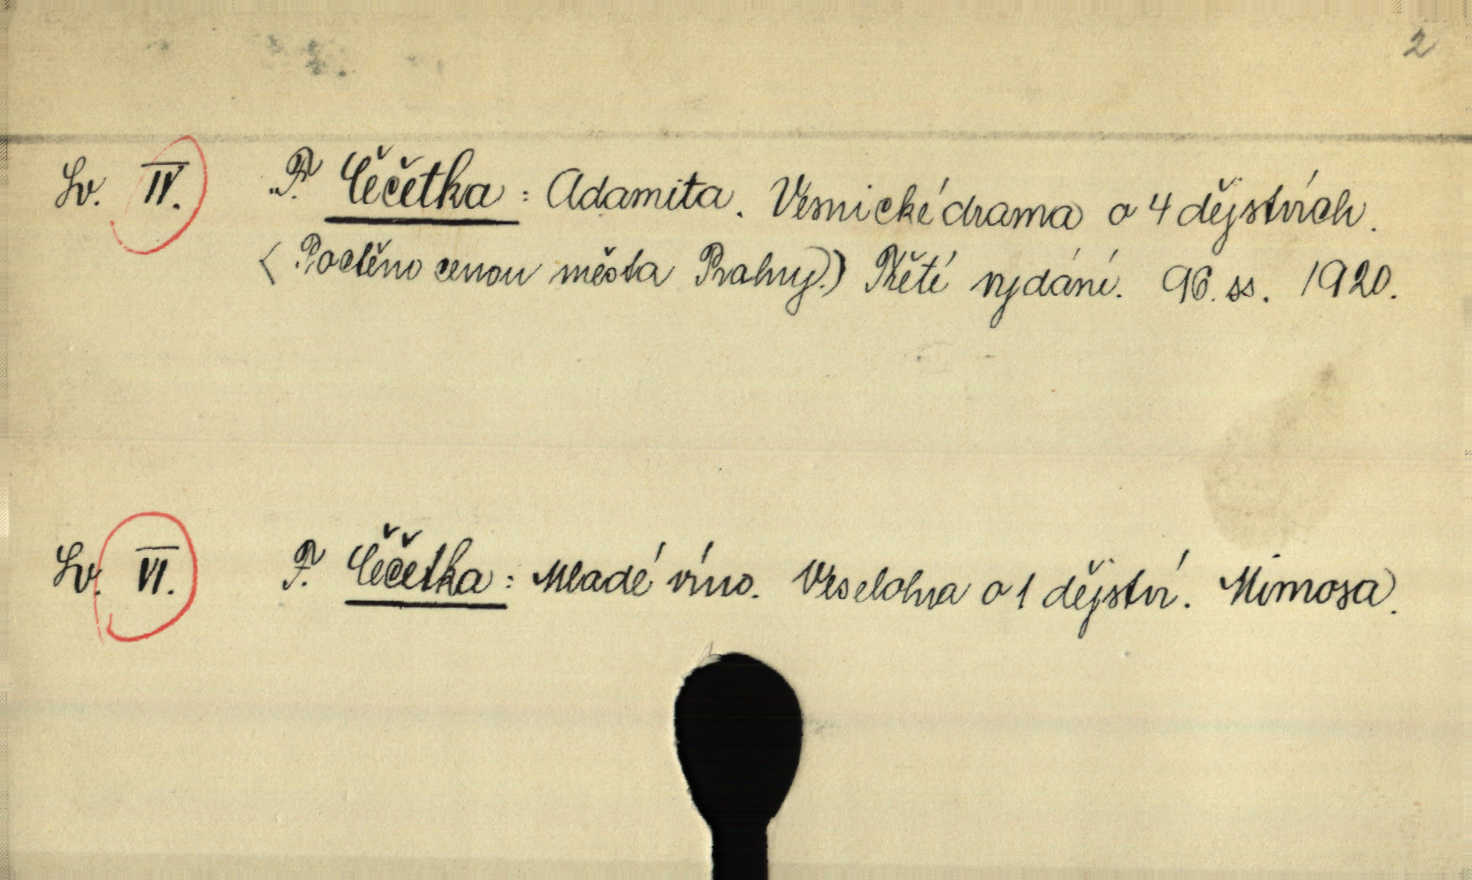 2
Sv. IV. F. Čečetka: Adamita. Vesnické drama o 4 dějstvích.
(Poctěno cenou města Prahy.) Třetí vydání. 96. ss. 1920.
Sv. VI. F. Čečetka: Mladé víno. Veselohra o 1 dějství. Mimosa.